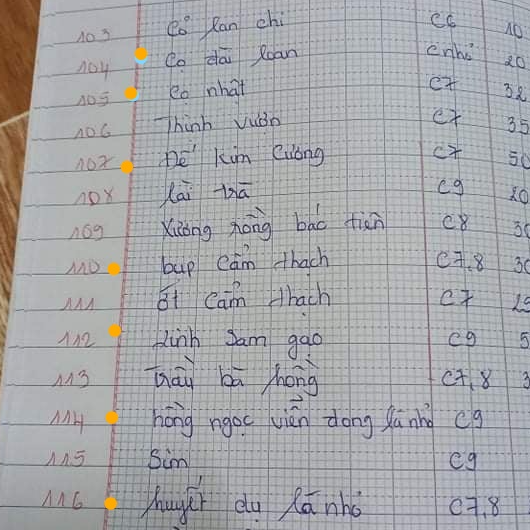 103 Cỏ lan chi C6 10
104 Cọ đài loan C nhỏ 20
105 Cọ nhật C7 32
106 Thịnh vượn C7 35
107 Đế kim Cương C7 50
108 lài trà C9 20
109 Xương rồng bác tiên C8 30
110 búp Cẩm thạch C7,8 30
111 ớt Cẩm thạch C7 25
112 Linh Sam gạo C9 5
113 Trầu bà hồng C7,8 3
114 hồng ngọc viền dong lá nhỏ C9
115 Sim C9
116 huyết dụ lá nhỏ C7,8